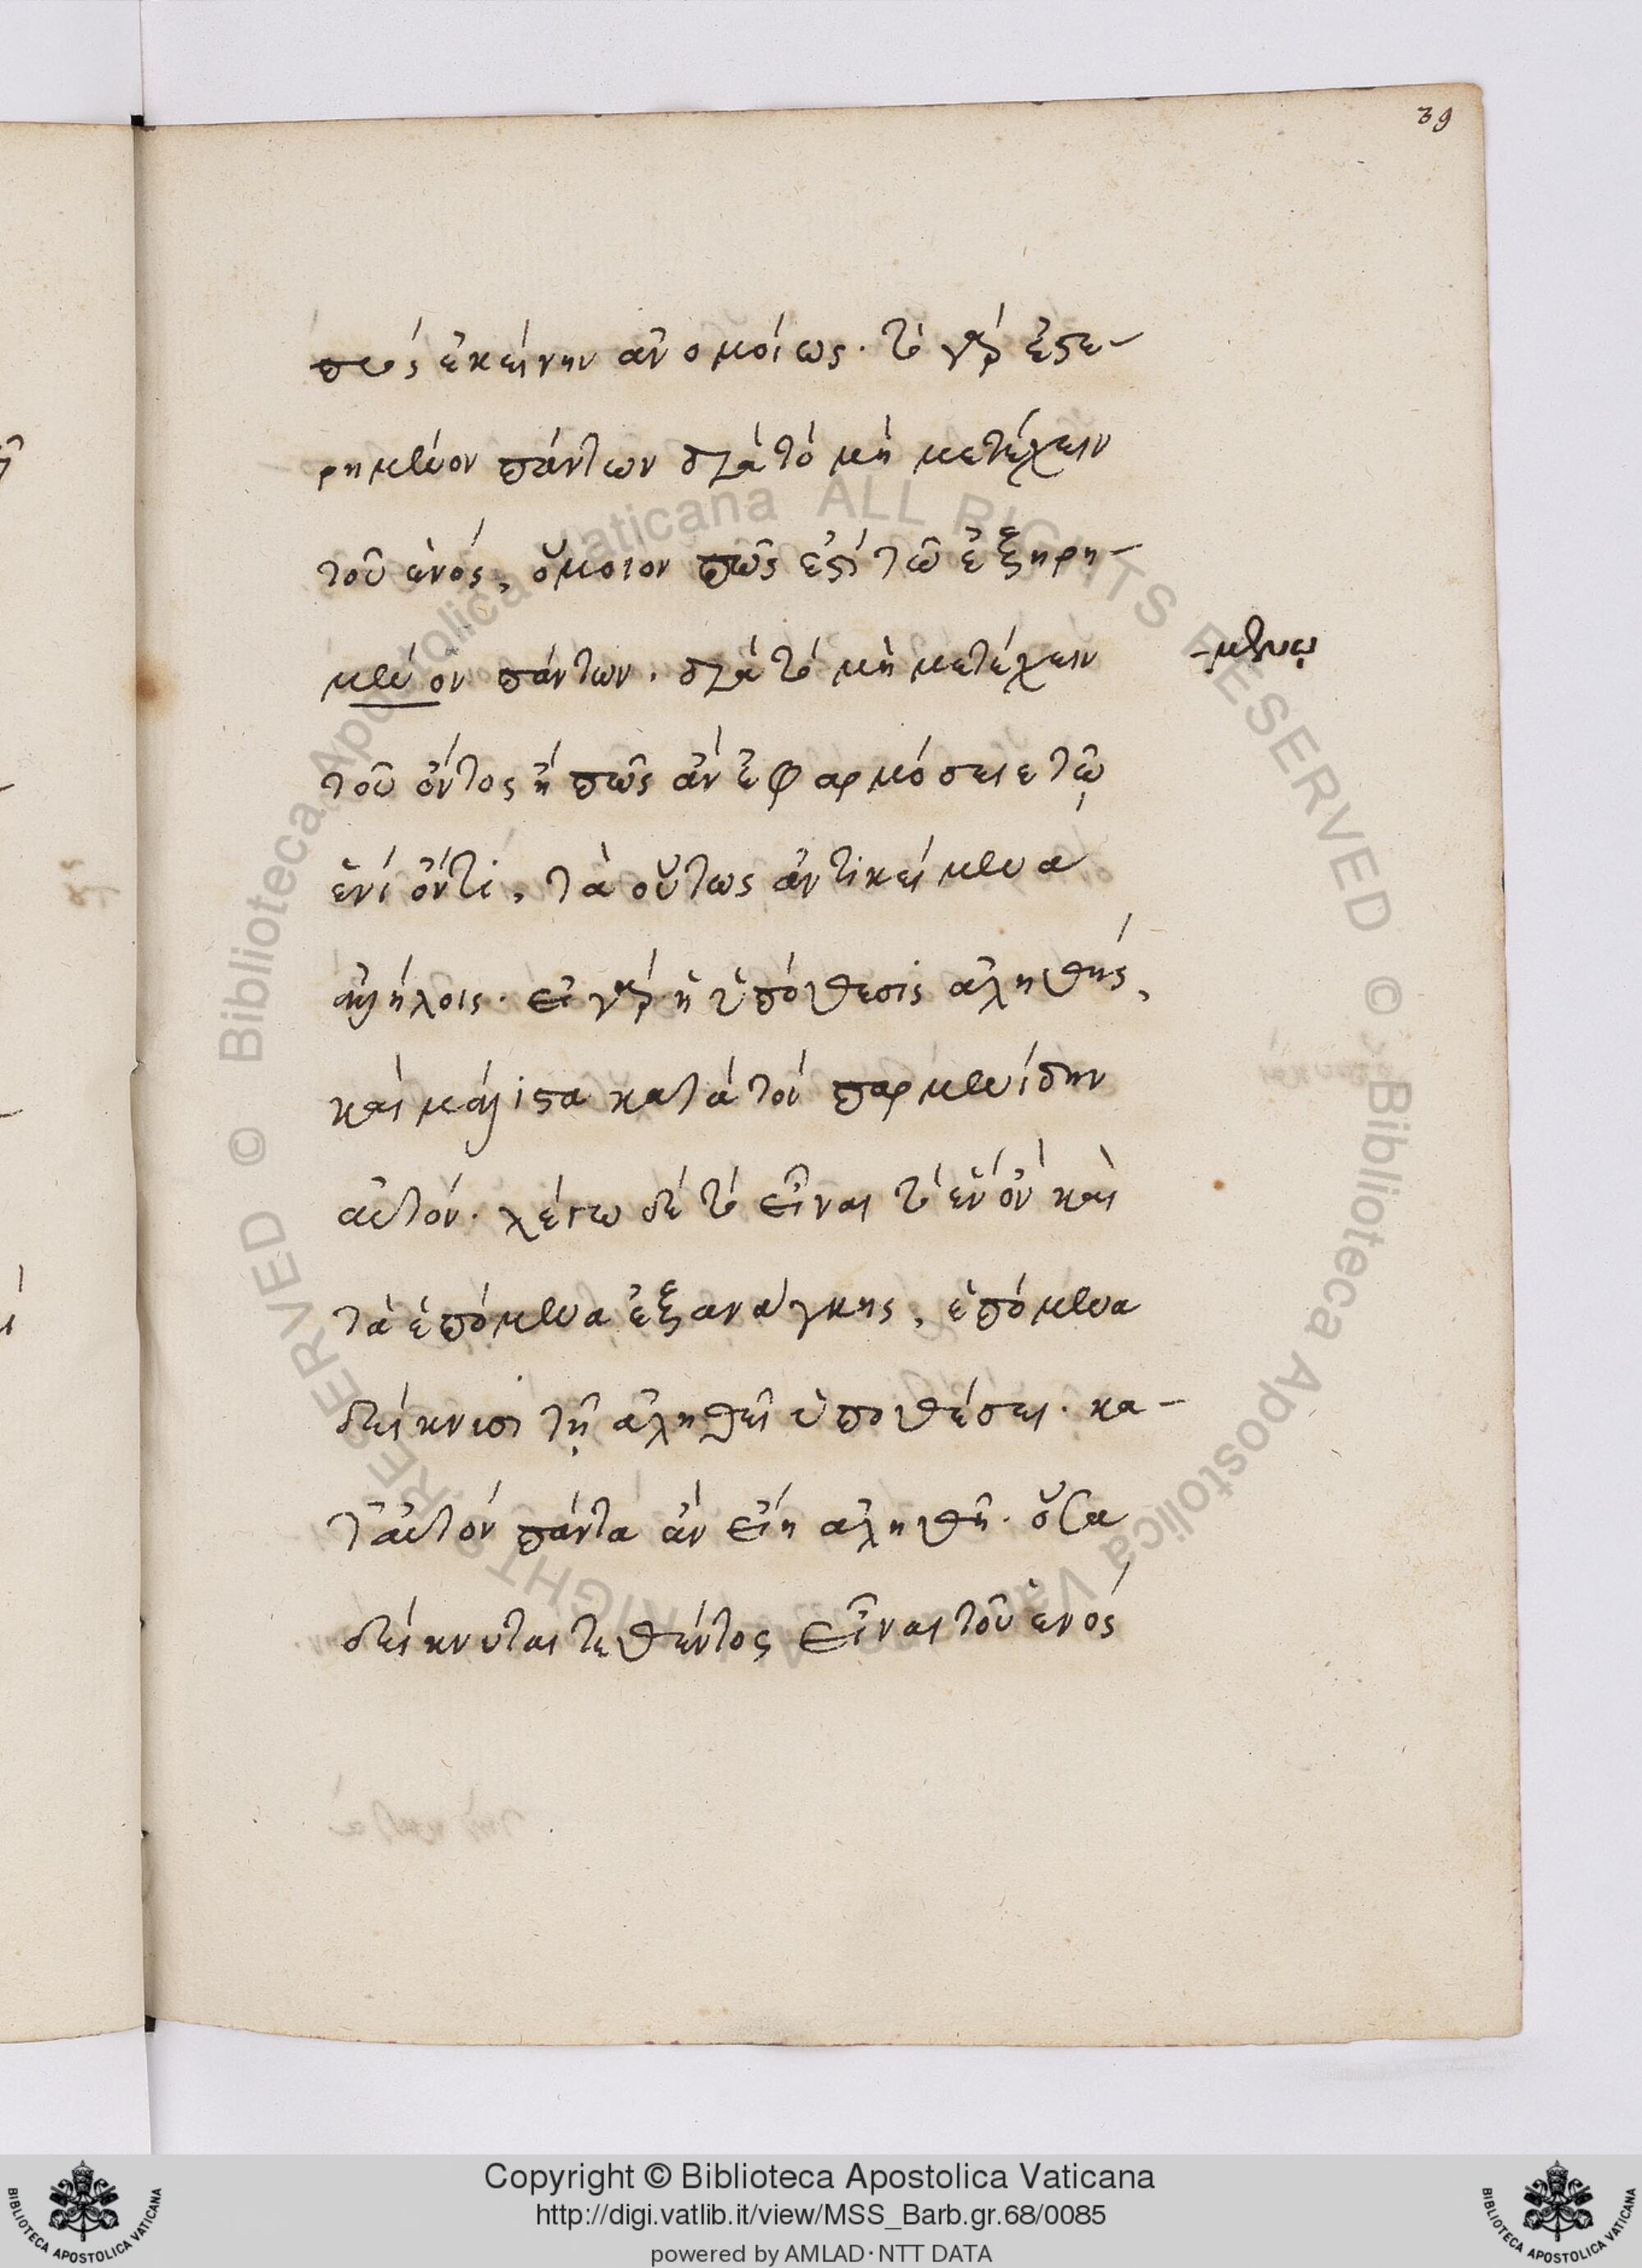 39
πρὸς ἐκείνην ἀνομοίως. τὸ γὰρ ἐστε-
ρημένον πάντων διὰ τὸ μὴ μετέχειν
τοῦ ἑνός, ὅμοιον πῶς ἐστὶ τῶ ἐξηρη-
μένον πάντων. διὰ τὸ μὴ μετέχειν
-μένῳ
τοῦ ὄντος ἢ πῶς ἂν ἐφαρμόσειε τῷ
ἑνὶ ὄντι, τὰ οὕτως ἀντικείμενα
ἀλλήλοις. εἰ γὰρ ἡ ὑπόθεσις ἀληθής,
καὶ μάλιστα κατὰ τὸν παρμενίδην
αὐτόν. λέγω δὲ τὸ εἶναι τὸ ἓν ὂν καὶ
τὰ ἑπόμενα ἐξανάγκης, ἑπόμενα
δείκνυσι τῇ ἀληθεῖ ὑποθέσει. κα-
τ' αὐτὸν πάντα ἂν εἴη ἀληθῆ. ὅσα
δείκνυται τεθέντος εἶναι τοῦ ἑνός
Copyright © Biblioteca Apostolica Vaticana
http://digi.vatlib.it/view/MSS_Barb.gr.68/0085
powered by AMLAD·NTT DATA
BIBLIOTECA APOSTOLICA VATICANA
BIBLIOTECA APOSTOLICA VATICANA
© Biblioteca Apostolica Vaticana ALL RIGHTS RESERVED
© Biblioteca Apostolica Vaticana ALL RIGHTS RESERVED